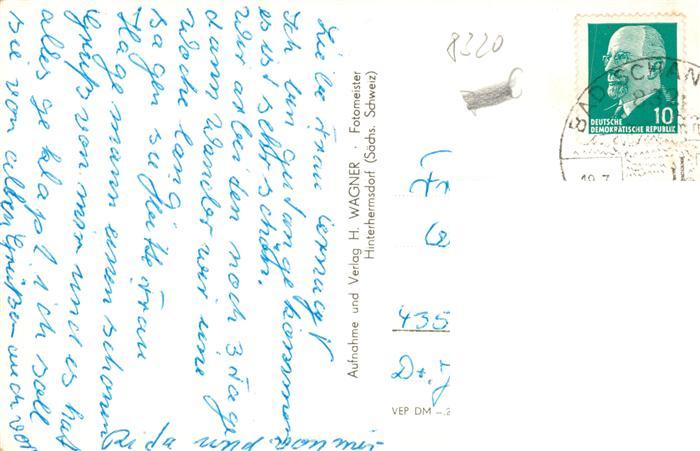 Liebe Frau
Ich bin gut angekommen
es ist sehr schön.
Wir arbeiten noch 3 Tage
dann wandern wir eine
Woche lang
sagen sie bitte Frau
Hagemann einen schönen
Gruß von mir und es hat
alles geklappt ich soll
sie von allen Grüßen auch von
Aufnahme und Verlag H. WAGNER · Fotomeister
Hinterhermsdorf (Sächs. Schweiz)
8320
10
DEUTSCHE
DEMOKRATISCHE REPUBLIK
BAD SCHAN
Fr
435
VEP DM